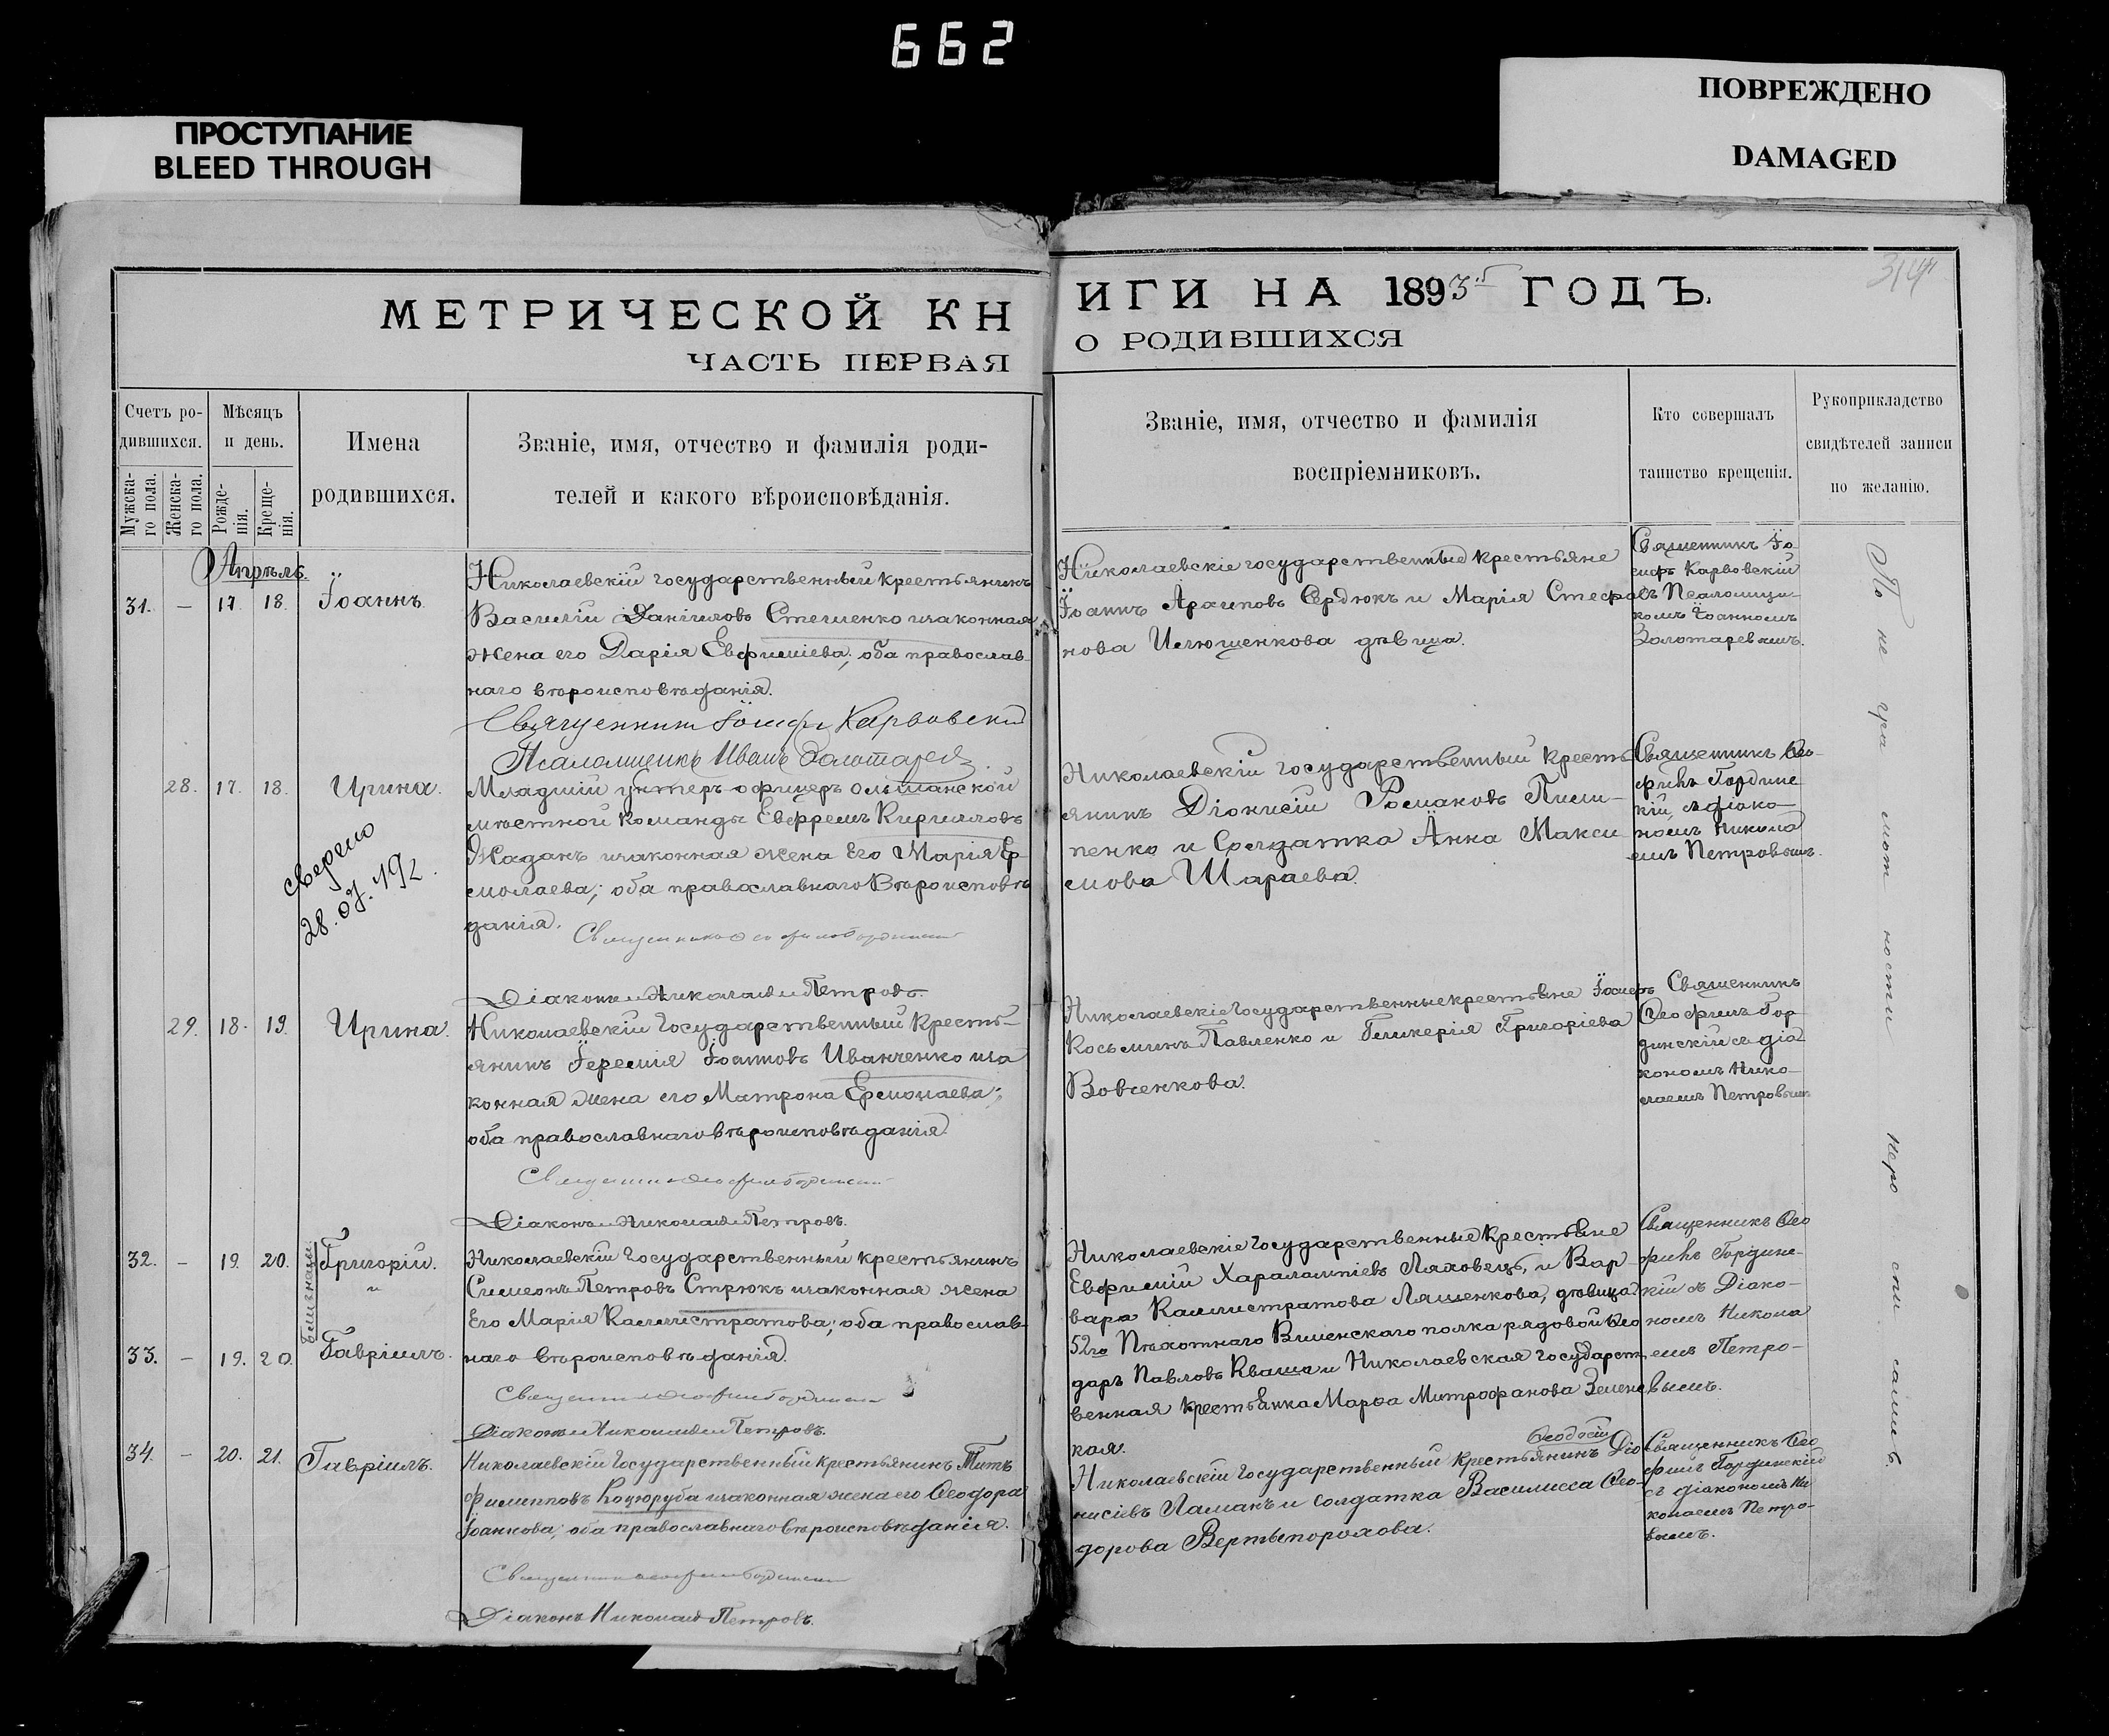 662
ПРОСТУПАНИЕ
BLEED THROUGH
ПОВРЕЖДЕНО
DAMAGED
314
МЕТРИЧЕСКОЙ КН
ИГИ НА 1893 ГОДЪ.
ЧАСТЬ ПЕРВАЯ
О РОДИВШИХСЯ
Счетъ ро-
дившихся.
Мужска-
го пола.
Женска-
го пола.
Мѣсяцъ
и день.
Рожде-
нія.
Креще-
нія.
Имена
родившихся.
Званіе, имя, отчество и фамилія роди-
телей и какого вѣроисповѣданія.
Званіе, имя, отчество и фамилія
воспріемниковъ.
Кто совершалъ
таинство крещенія.
Рукоприкладство
свидѣтелей записи
по желанію.
Апрѣль.
31. — 17. 18. Іоаннъ
Николаевскій государственный крестьянинъ
Василій Даніиловъ Стеценко и законная
жена его Дарія Евфиміева; оба православ-
наго вѣроисповѣданія.
Священникъ Іосифъ Карвовскій
Псаломщикъ Иванъ Золотаревъ
Николаевскіе государственные крестьяне
Іоаннъ Архиповъ Сердюкъ и Марія Стефа-
нова Илюшенкова дѣвица.
Священникъ Іо-
сифъ Карвовскій
съ Псаломщи-
комъ Іоанномъ
Золотаревымъ.
28. 17. 18. Ирина.
Младшій унтеръ-офицеръ Ольшанской
мѣстной команды Евфремъ Кирилловъ
Жаданъ и законная жена его Марія Ер-
молаева; оба православнаго вѣроисповѣ
данія.
Діаконъ Николай Петровъ.
Николаевскій государственный кресть
янинъ Діонисій Романовъ Пили-
пенко и Солдатка Анна Макси
мова Шараева.
Священникъ Ѳео-
филъ Гордине
кій, съ діако-
номъ Никола
емъ Петровымъ.
сверено
28. 07. 192
29. 18. 19. Ирина.
Николаевскій Государственный Кресть-
янинъ Іеремія Іоанновъ Иванченко и за
конная жена его Матрона Ермолаева;
оба православнаго вѣроисповѣданія.
Діаконъ Николай Петровъ.
Николаевскіе Государственные крестьяне Іосифъ
Косьминъ Павленко и Гликерія Григоріева
Вовченкова.
Священникъ
Ѳеофилъ Гор-
динскій съ діа
кономъ Нико-
лаемъ Петровымъ
32. — 19. 20. Григорій.
и
близнецы
33. — 19. 20. Гавріилъ.
Николаевскій Государственный крестьянинъ
Симеонъ Петровъ Стрюкъ и законная жена
Его Марія Каллистратова; оба православ-
наго вѣроисповѣданія.
Діаконъ Николай Петровъ.
Николаевскіе Государственные Крестьяне
Евфимій Харалампіевъ Ляховецъ, и Вар-
вара Каллистратова Ляшенкова, дѣвица
52го Пѣхотнаго Виленскаго полка рядовой Ѳео
доръ Павловъ Кваша и Николаевская государст
венная крестьянка Марѳа Митрофанова Зеленс
кая.
Священникъ Ѳео
филъ Гордине-
кій съ Діако-
номъ Никола
емъ Петро-
вымъ.
34. — 20. 21. Гавріилъ.
Николаевскій Государственный крестьянинъ Титъ
Филипповъ Коцюруба и законная жена его Ѳеодора
Іоаннова; оба православнаго вѣроисповѣданія.
Діаконъ Николай Петровъ.
Ѳеодосій
Николаевскій Государственный крестьянинъ Діо
нисіевъ Ламакъ и солдатка Василисса Ѳео-
дорова Вертыпорохова.
Священникъ Ѳео
филъ Гординскій
съ діакономъ Ни
колаемъ Петро-
вымъ.
По не гра мот ности